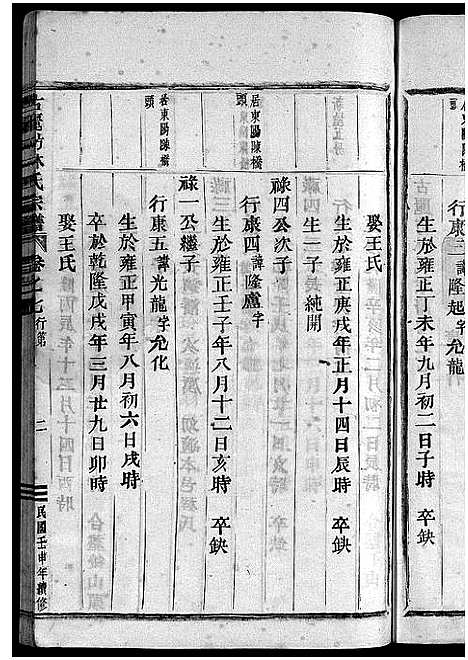 行康三諱隆起字允龍
生於雍正丁未年九月初二日子時 卒缺
娶王氏
生於雍正庚戌年正月十四日辰時 卒缺
生一子長純開
祿四公次子
居東陽陳橋頭
行康四諱隆盧字
生於雍正壬子年八月十二日亥時 卒缺
祿一公繼子
居東陽陳橋頭
行康五諱光龍字允化
生於雍正甲寅年八月初六日戌時
卒於乾隆戊戌年三月廿九日卯時
娶王氏
林氏宗譜 卷之七 行第 二 民國壬申年續修